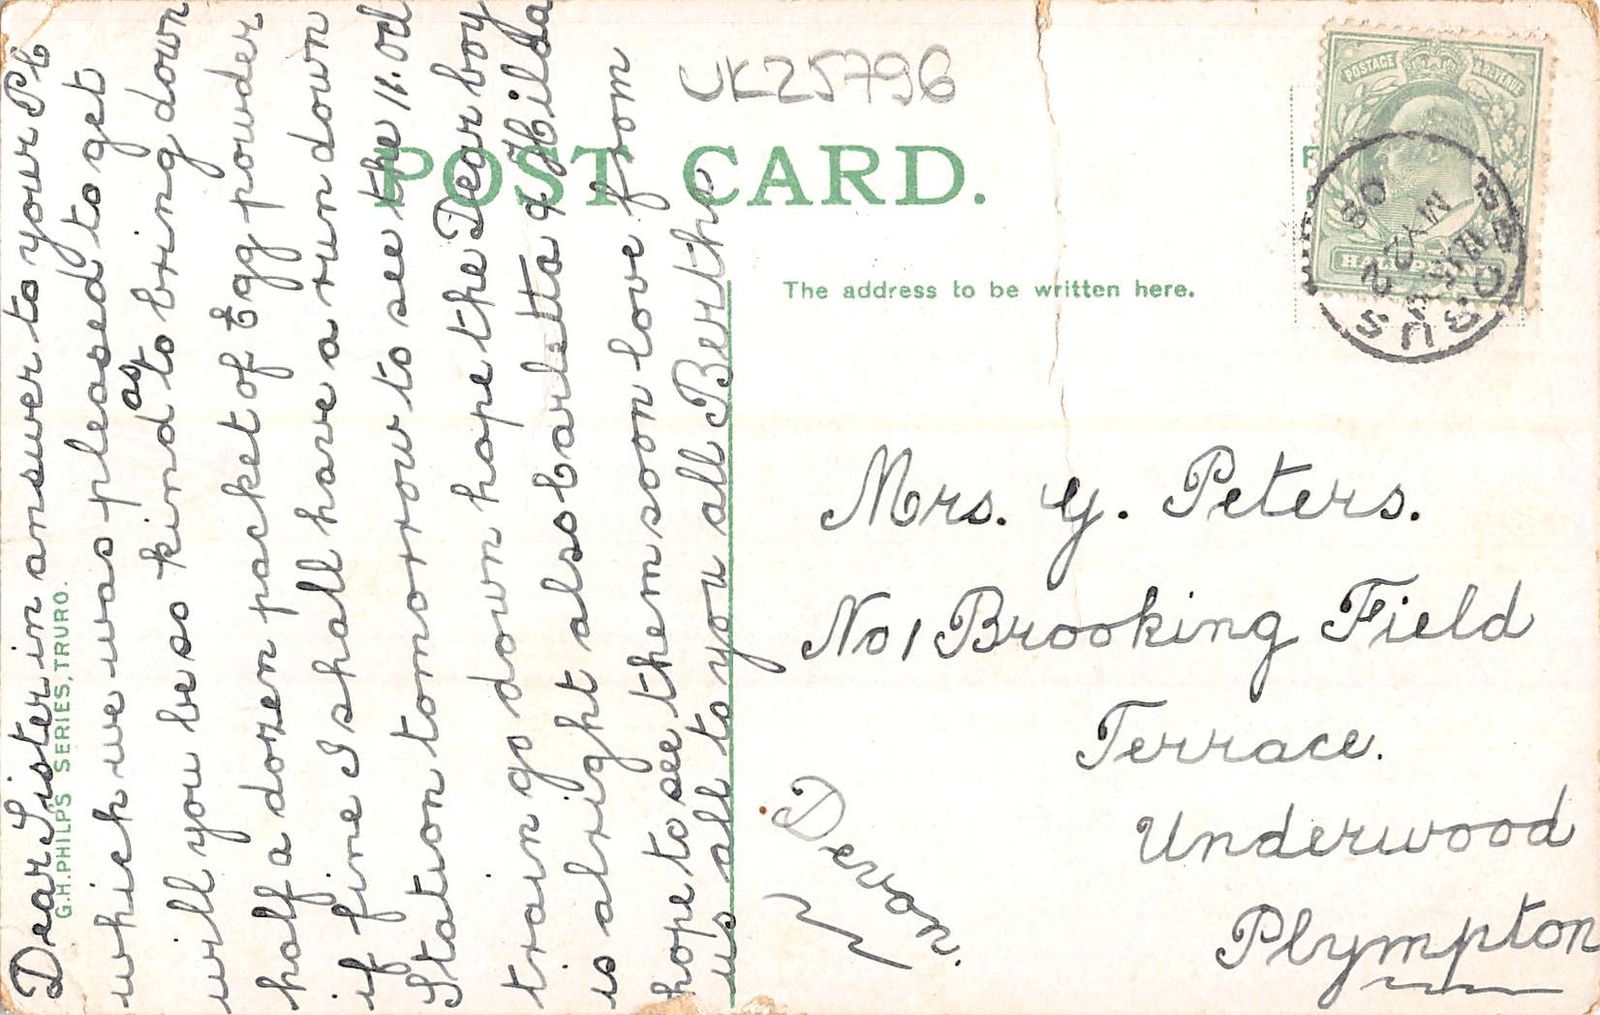 UK25796
POST CARD.
The address to be written here.
G.H.PHILP'S SERIES, TRURO.
Dear Sister in answer to your Pc
which we was pleased to get
will you be so kind as to bring down
half a dozen packet of Egg powder
if fine I shall have a run down
Station tomorrow to see the 11.0cl
train go down hope the Dear boy
is alright also Carletta & Hilda
hope to see them soon love from
us all to you all Bertha
Mrs. Y. Peters.
No 1 Brooking Field
Terrace.
Underwood
Plympton
Devon.
POSTAGE
HALFPENNY
MY 20
08